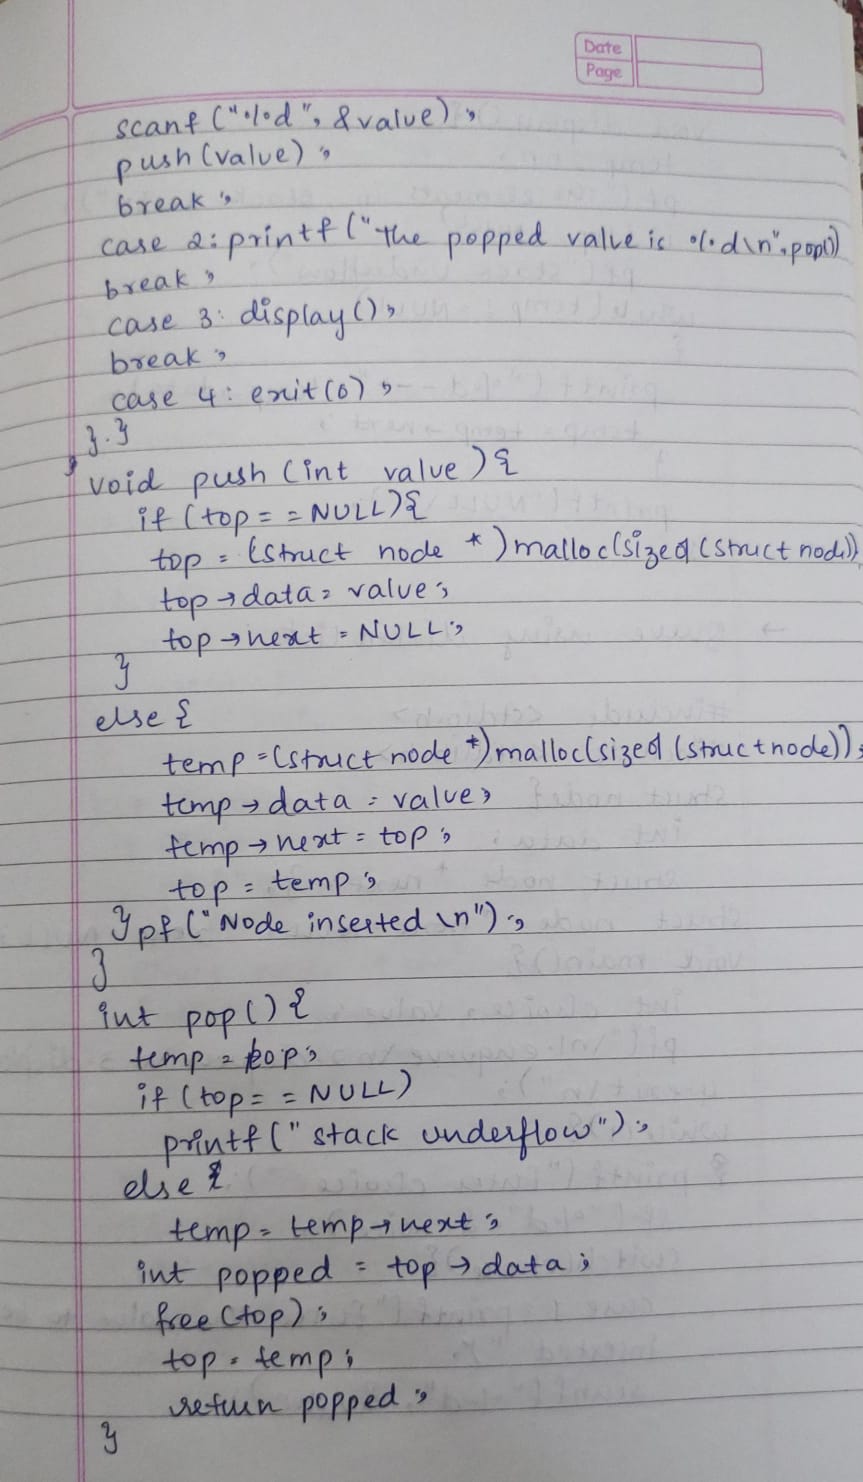 Date
Page
scanf ("%d", &value);
push (value);
break;
case 2: printf ("The popped value is %d\n", pop())
break;
case 3: display();
break;
case 4: exit(0);
}.}
void push (int value) {
if (top == NULL) {
top = (struct node *) malloc(sizeof (struct node))
top → data = value;
top → next = NULL;
}
else {
temp = (struct node *) malloc(sizeof (struct node));
temp → data = value;
temp → next = top;
top = temp;
} pf ("Node inserted \n");
}
int pop() {
temp = top;
if (top == NULL)
printf (" stack underflow");
else {
temp = temp → next;
int popped = top → data;
free (top);
top = temp;
return popped;
}